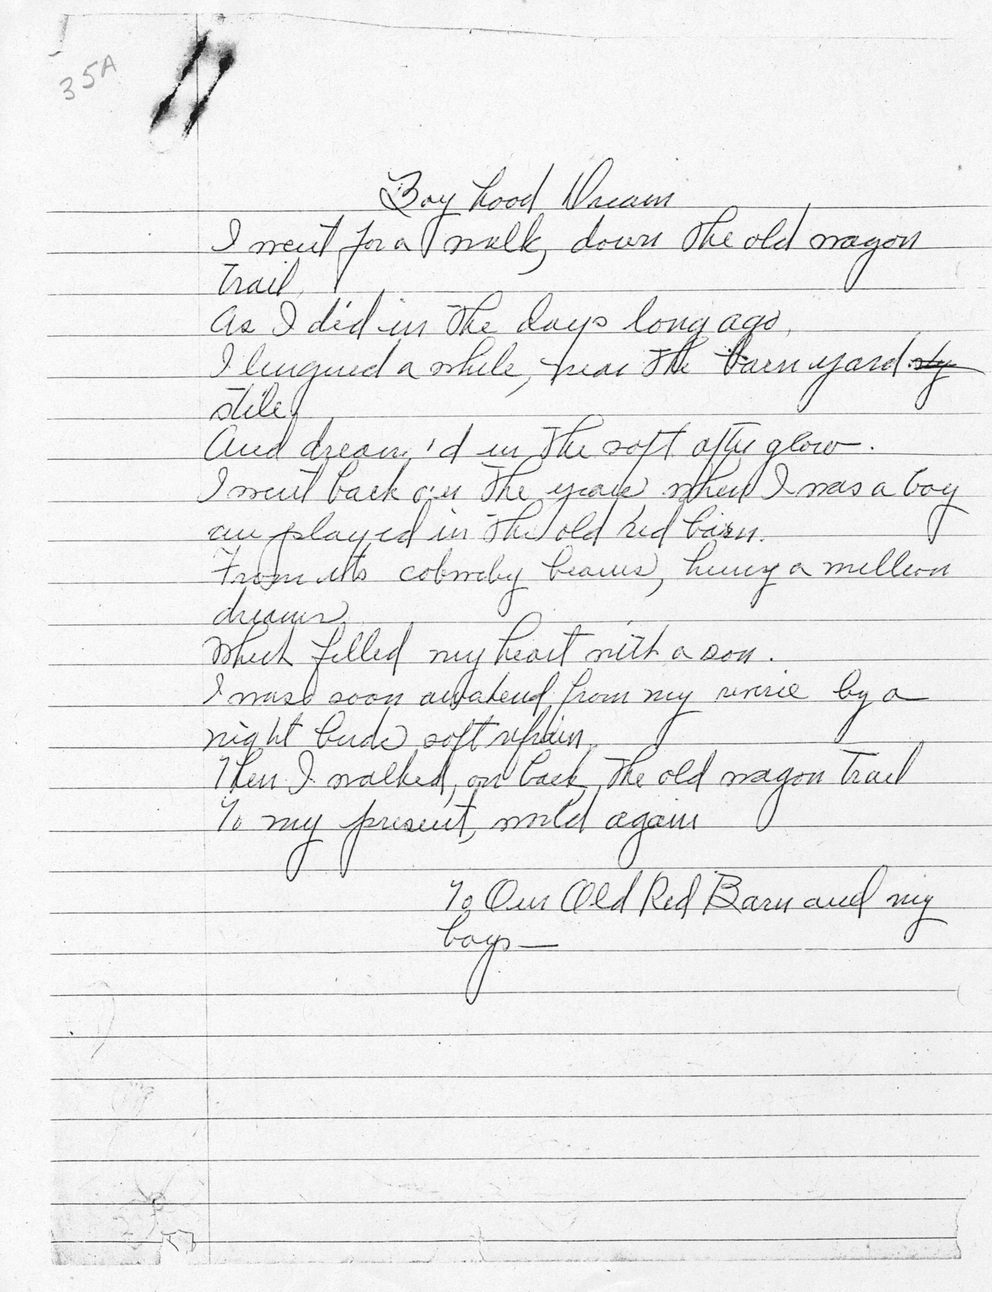 35A
Boy hood Dream
I went for a walk, down the old wagon
trail,
As I did in the days long ago,
I lingered a while, near the barn yard sty
stile,
And dream'd in the soft after glow.
I went back over the years when I was a boy
an played in the old red barn.
From its cobweby beams, hung a million
dreams
Which filled my heart with a
I was soon awakend from my reverie by a
night birds soft refrain,
Then I walked, on back, the old wagon trail
To my present, world again
To Our Old Red Barn and my
boys—